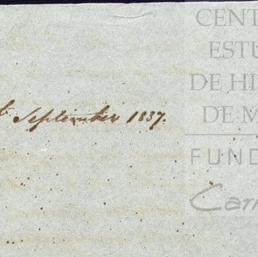 CENT
ESTU
DE HI
DE M
FUND
Car
t September 1837.